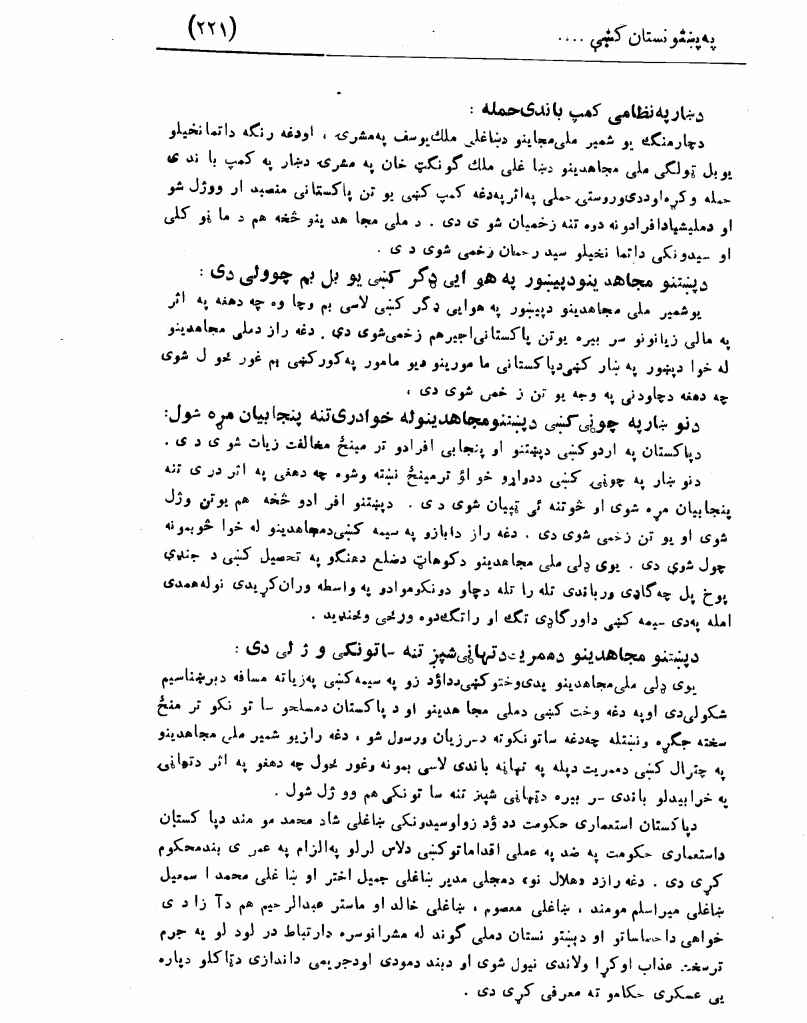 (۲۲۱)
په پښتونستان کښې ....
دښار په نظامی کمپ باندی حمله :
دچارمنگ یو شمیر ملی مجاینو دښاغلی ملك یوسف په مشرۍ ، اودغه رنگه داتمانخیلو
یو بل ټولگی ملی مجاهدینو دښا غلی ملك گونگټ خان په مشرۍ دښار په کمپ با ند ی
حمله وکړه اوددی وروستی حملی په اثر په دغه کمپ کښی یو تن پاکستانی منصبد ار ووژل شو
او دملیشیا دافرادونه دوه تنه زخمیان شو ی دی . د ملی مجا هد ینو څخه هم د ما ڼو کلی
او سیدونکی داتما نخیلو سید رحمان زخمی شوی د ی .
دپښتنو مجاهد ینودپیښور په هو ایی ډگر کښی یو بل بم چوولی دی :
یوشمیر ملی مجاهدینو دپیښور په هوایی ډگر کښی لاسی بم وچا وه چه دهغه په اثر
په مالی زیانونو سر بیره یوتن پاکستانی انجیرهم زخمی شوی دی . دغه راز دملی مجاهدینو
له خوا دپیښور په ښار کښی دپاکستانی ما مورینو دیو مامور په کورکښی بم غور ځو ل شوی
چه دهغه دچاودنی په وجه یو تن ز خمی شوی دی ،
دنو ښار په چوڼی کښی دپښتنومجاهدینوله خوادری تنه پنجابیان مړه شول:
دپاکستان په اردوکښی دپښتنو او پنجابی افرادو تر مینځ مخالفت زیات شو ی د ی .
دنو ښار په چوڼی کښی ددواړو خو اؤ ترمینځ نښته وشوه چه دهغی په اثر دری تنه
پنجابیان مړه شوی او څوتنه ئی ټپیان شوی د ی . دپښتنو افر ادو څخه هم یوتن وژل
شوی او یو تن زخمی شوی دی . دغه راز دابازو په سیمه کښی دمجاهدینو له خوا څوبمونه
چول شوی دی . یوی ډلی ملی مجاهدینو دکوهاټ دضلع دهنگو په تحصیل کښی د جنډې
پوخ پل چه گاډی ورباندی تله را تله دچاو دونکوموادو په واسطه وران کړیدی نوله همدی
امله په دی سیمه کښی داورگاډی تگ او راتگ دوه ورځی وځنډید .
دپښتنو مجاهدینو دممریت دتهاڼی شپږ تنه ساتونکی و ژ لی دی :
یوی ډلی ملی مجاهدینو پدی وختوکښی دداؤد زو په سیمه کښی په زیاته مسافه دبرښناسیم
شکولی دی اوپه دغه وخت کښی دملی مجا هدینو او د پاکستان دمسلحو سا تو نکو تر منځ
سخته جگړه ونښتله چه دغه ساتونکوته سر زیان ورسول شو ، دغه رازیو شمیر ملی مجاهدینو
په چترال کښی دممریت دپله په تهاڼه باندی لاسی بمونه وغور ځول چه دهغو په اثر دتهاڼی
په خرابیدلو باندی سر بیره دتهاڼی شپږ تنه سا تونکی هم وو ژل شول .
دپاکستان استعماری حکومت دد ؤد زواوسیدونکی ښاغلی شاد محمد مو مند دپا کستان
داستعماری حکومت په ضد په عملی اقداماتوکښی دلاس لرلو په الزام په عمر ی بندمحکوم
کړی دی . دغه رازد «هلال نو» دمجلی مدیر ښاغلی جمیل اختر او ښا غلی محمد ا سمعیل
ښاغلی میراسلم مومند ، ښاغلی معصوم ، ښاغلی خالد او ماستر عبدالرحیم هم دآ زا د ی
خواهی داحساساتو او دپښتو نستان دملی گوند له مشرانوسره دارتباط در لود لو په جرم
ترسخت عذاب اوکړا ولاندی نیول شوی او دبند دمودی اودجریمی داندازی دټاکلو دپاره
یی عسکری حکامو ته معرفی کړی دی .